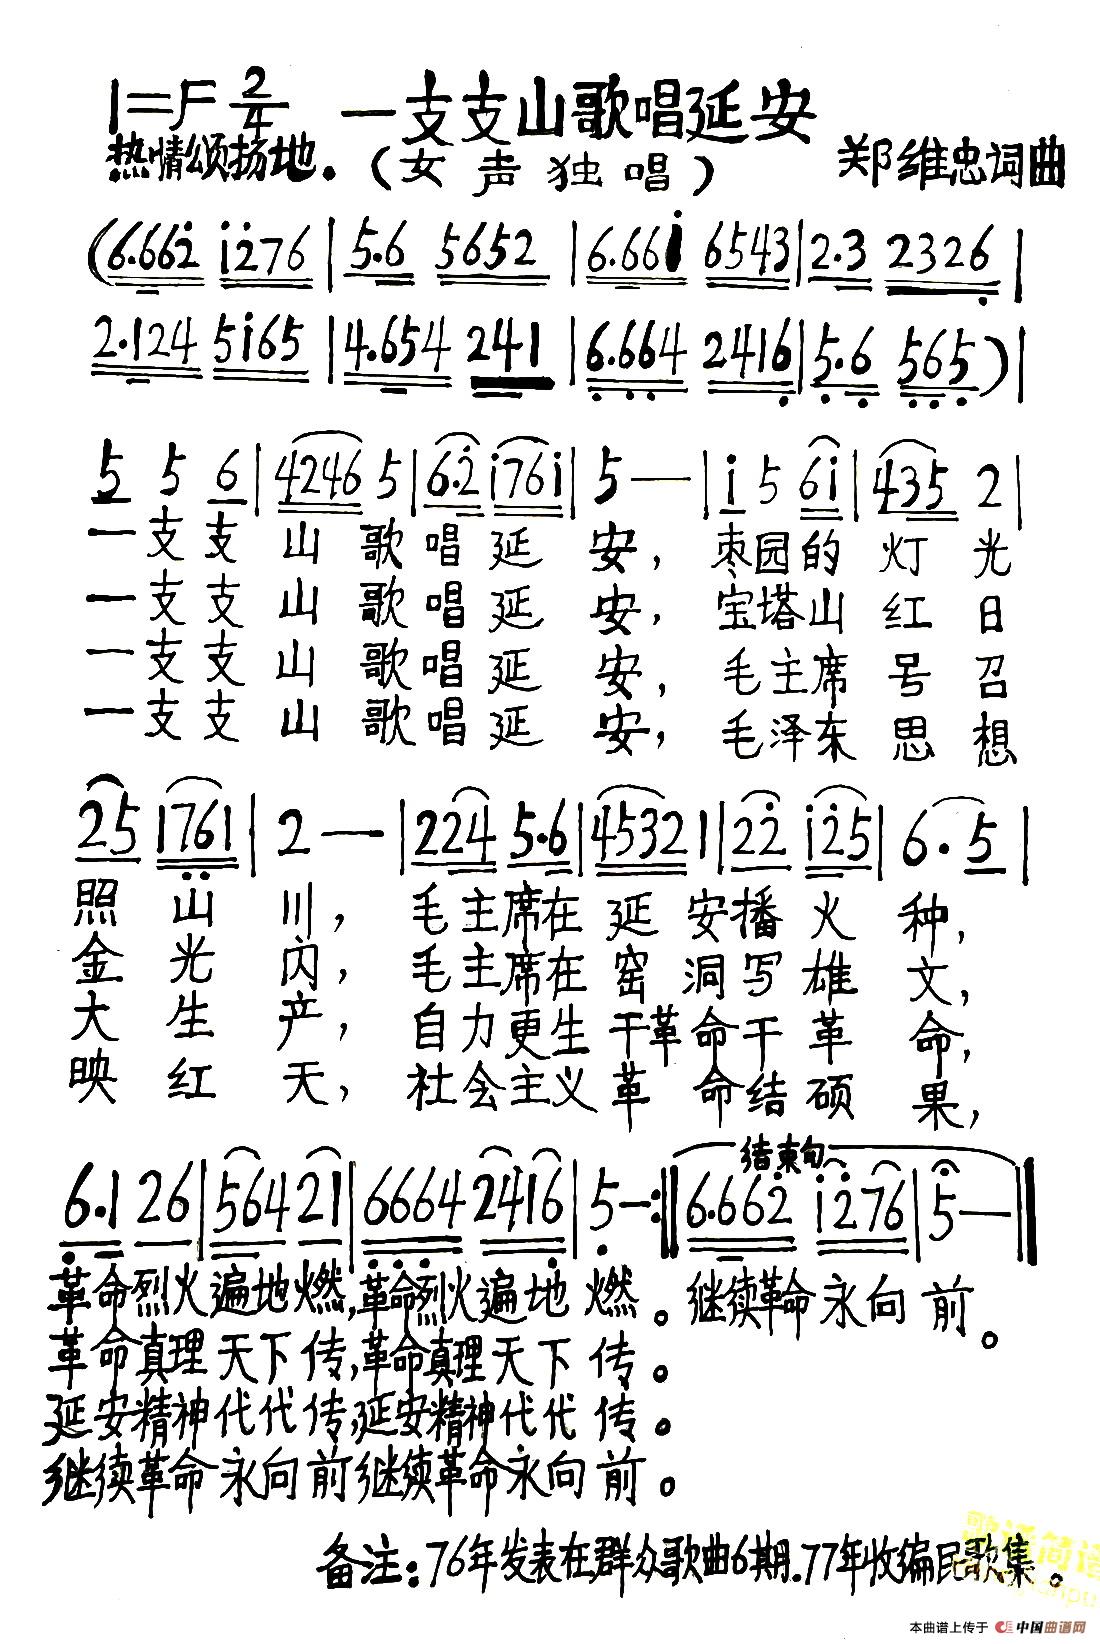 1=F 2/4 一支支山歌唱延安
热情颂扬地. (女声独唱) 郑维忠词曲
(6.662 1276 | 5.6 5652 | 6.661 6543 | 2.3 2326 |
2.124 5165 | 4.654 241 | 6.664 2416 | 5.6 565) |
5 5 6 | 4246 5 | 6.2 1761 | 5 — | 1 5 61 | 435 2 |
一支支山歌唱延安,枣园的灯光
一支支山歌唱延安,宝塔山红日
一支支山歌唱延安,毛主席号召
一支支山歌唱延安,毛泽东思想
25 1761 | 2 — | 224 5.6 | 4532 1 | 22 125 | 6.5 |
照山川,毛主席在延安播火种,
金光闪,毛主席在窑洞写雄文,
大生产,自力更生干革命干革命,
映红天,社会主义革命结硕果,
结束句
6.1 26 | 564 21 | 6664 2416 | 5 — :‖ 6.662 1276 | 5 — ‖
革命烈火遍地燃,革命烈火遍地燃。继续革命永向前。
革命真理天下传,革命真理天下传。
延安精神代代传,延安精神代代传。
继续革命永向前继续革命永向前。
备注:76年发表在群众歌曲6期.77年收编民歌集。
歌谱简谱
本曲谱上传于 中国曲谱网